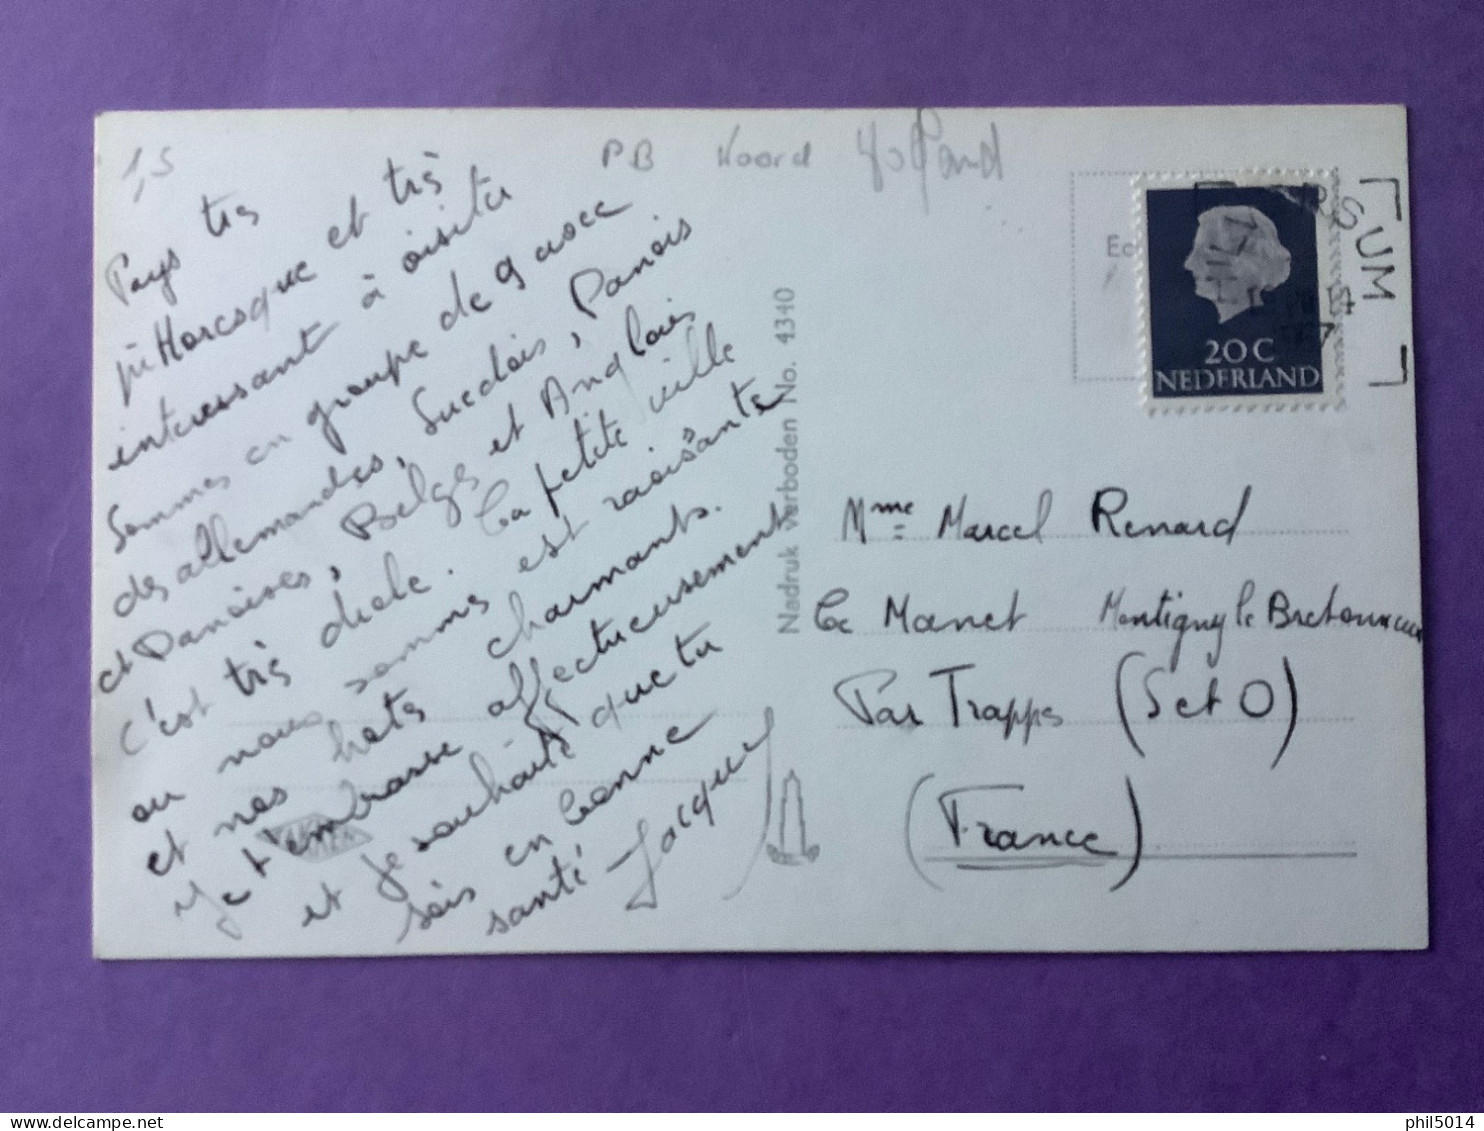 1,5
PB Noord Holland
Pays très
pittoresque et très
interessant à visiter
Sommes en groupe de 9 avec
des allemandes, Suedois, Danois
et Danoises, Belges et Anglais
c'est très drole. La petite ville
ou nous sommes est ravissante
et nos hotes charmants.
Je t'embrasse affectueusement
et je souhaite que tu
sois en bonne
santé Jacques
Nadruk verboden No. 4340
Ec
RSUM
20C
NEDERLAND
Mme Marcel Renard
Le Manet Montigny le Bretonneux
Par Trappes (S et O)
(France)
phil5014
delcampe.net